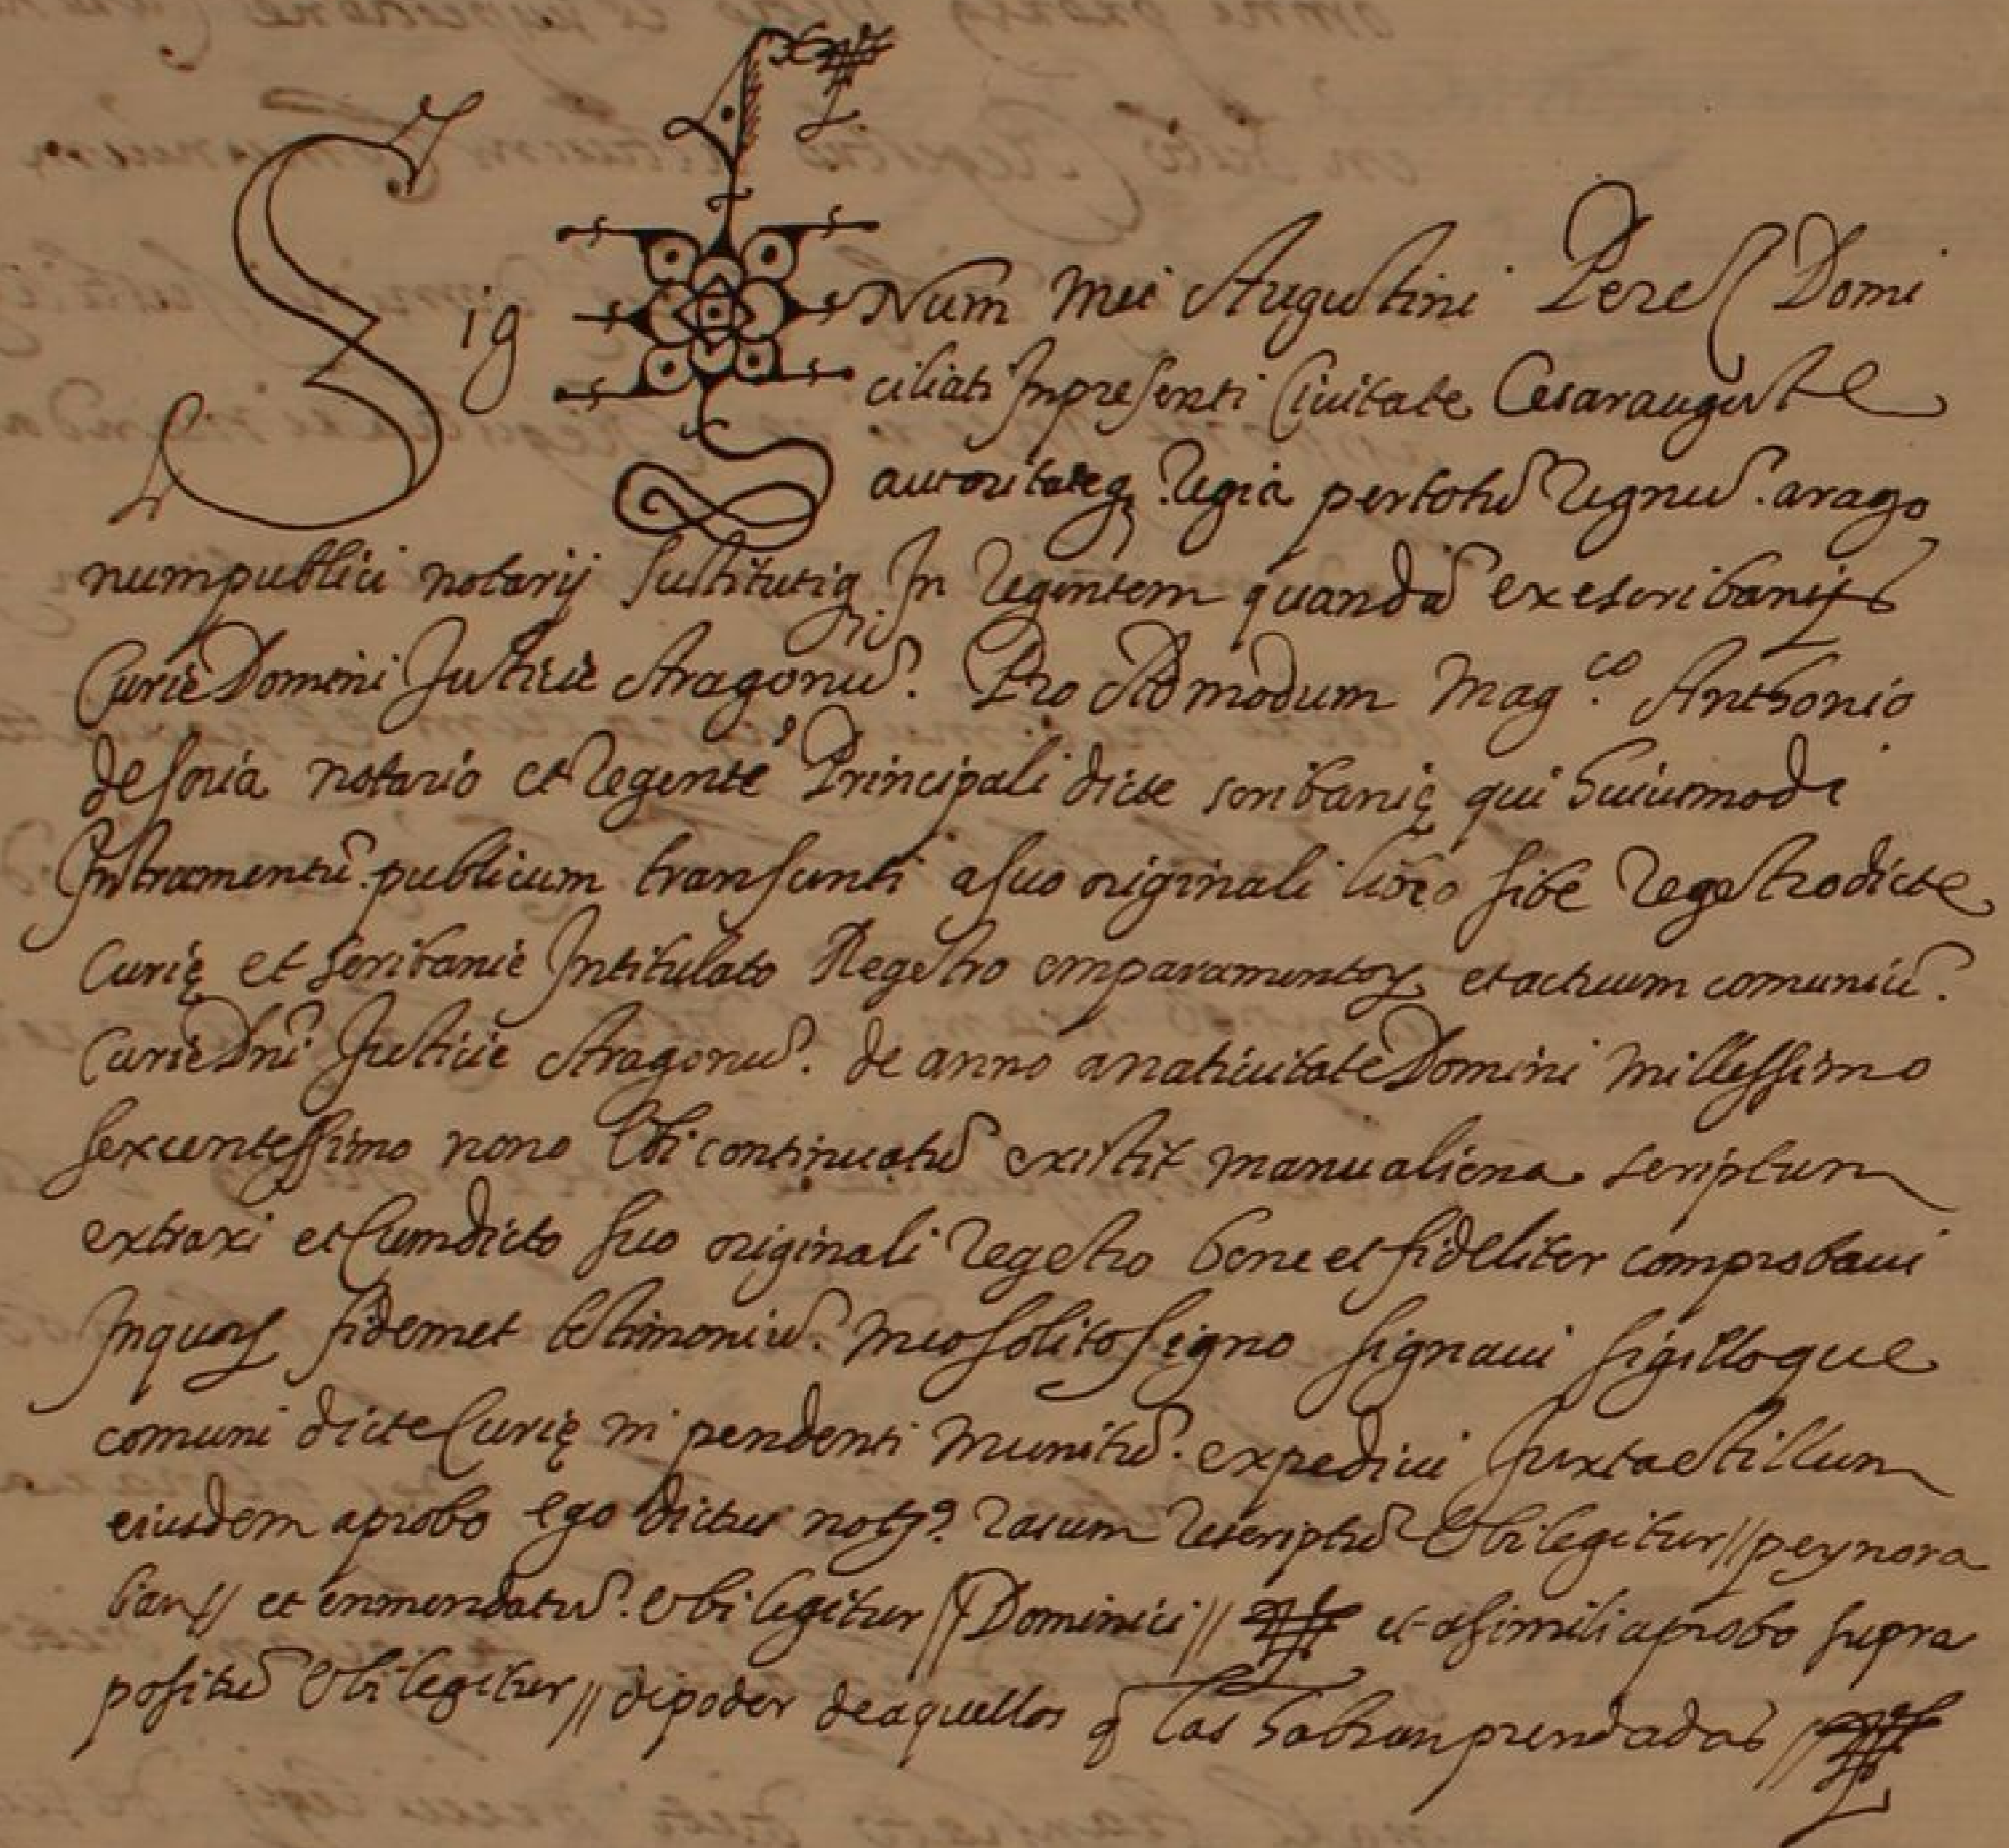 Sig Num mei Augustini Perez Domi
ciliati In presenti Ciuitate Cesarauguste
autoritateq Regia per totũ Regnũ. arago
num publici notarij sustitutiq In Regentem quandã ex escribanijs
Curie Domini Justicie Aragonũ. Pro Admodum Magco. Anthonio
de soria notario et Regente Principali dicte scribanię qui huiusmodi
Instramentũ. publicum transunti a suo originali libro sibe Regestro dicte
Curię et scribanie Intitulato Regestro emparamentoꝝ et actuum comuniũ.
Curie Dnĩ Justicie Aragonũ. de anno a natiuitate Domini millessimo
sexcentessimo nono Vbi continuatũ existit manu aliena scriptum
extraxi et Cum dicto suo originali Regestro bene et fideliter comprobaui
In quoꝝ fidem et testimoniũ. meo solito signo signaui sigilloque
comuni dicte Curię in pendenti munitũ. expediui Juxta estillum
eiusdem aprobo ego dictus notꝰ. rasum Rescriptũ Vbi legitur // peynora
ban // et enmendatũ. Vbi legitur // Dominici // et asimili aprobo supra
positũ Vbi legitur // de poder de aquellos q̃ las habran prendadas //